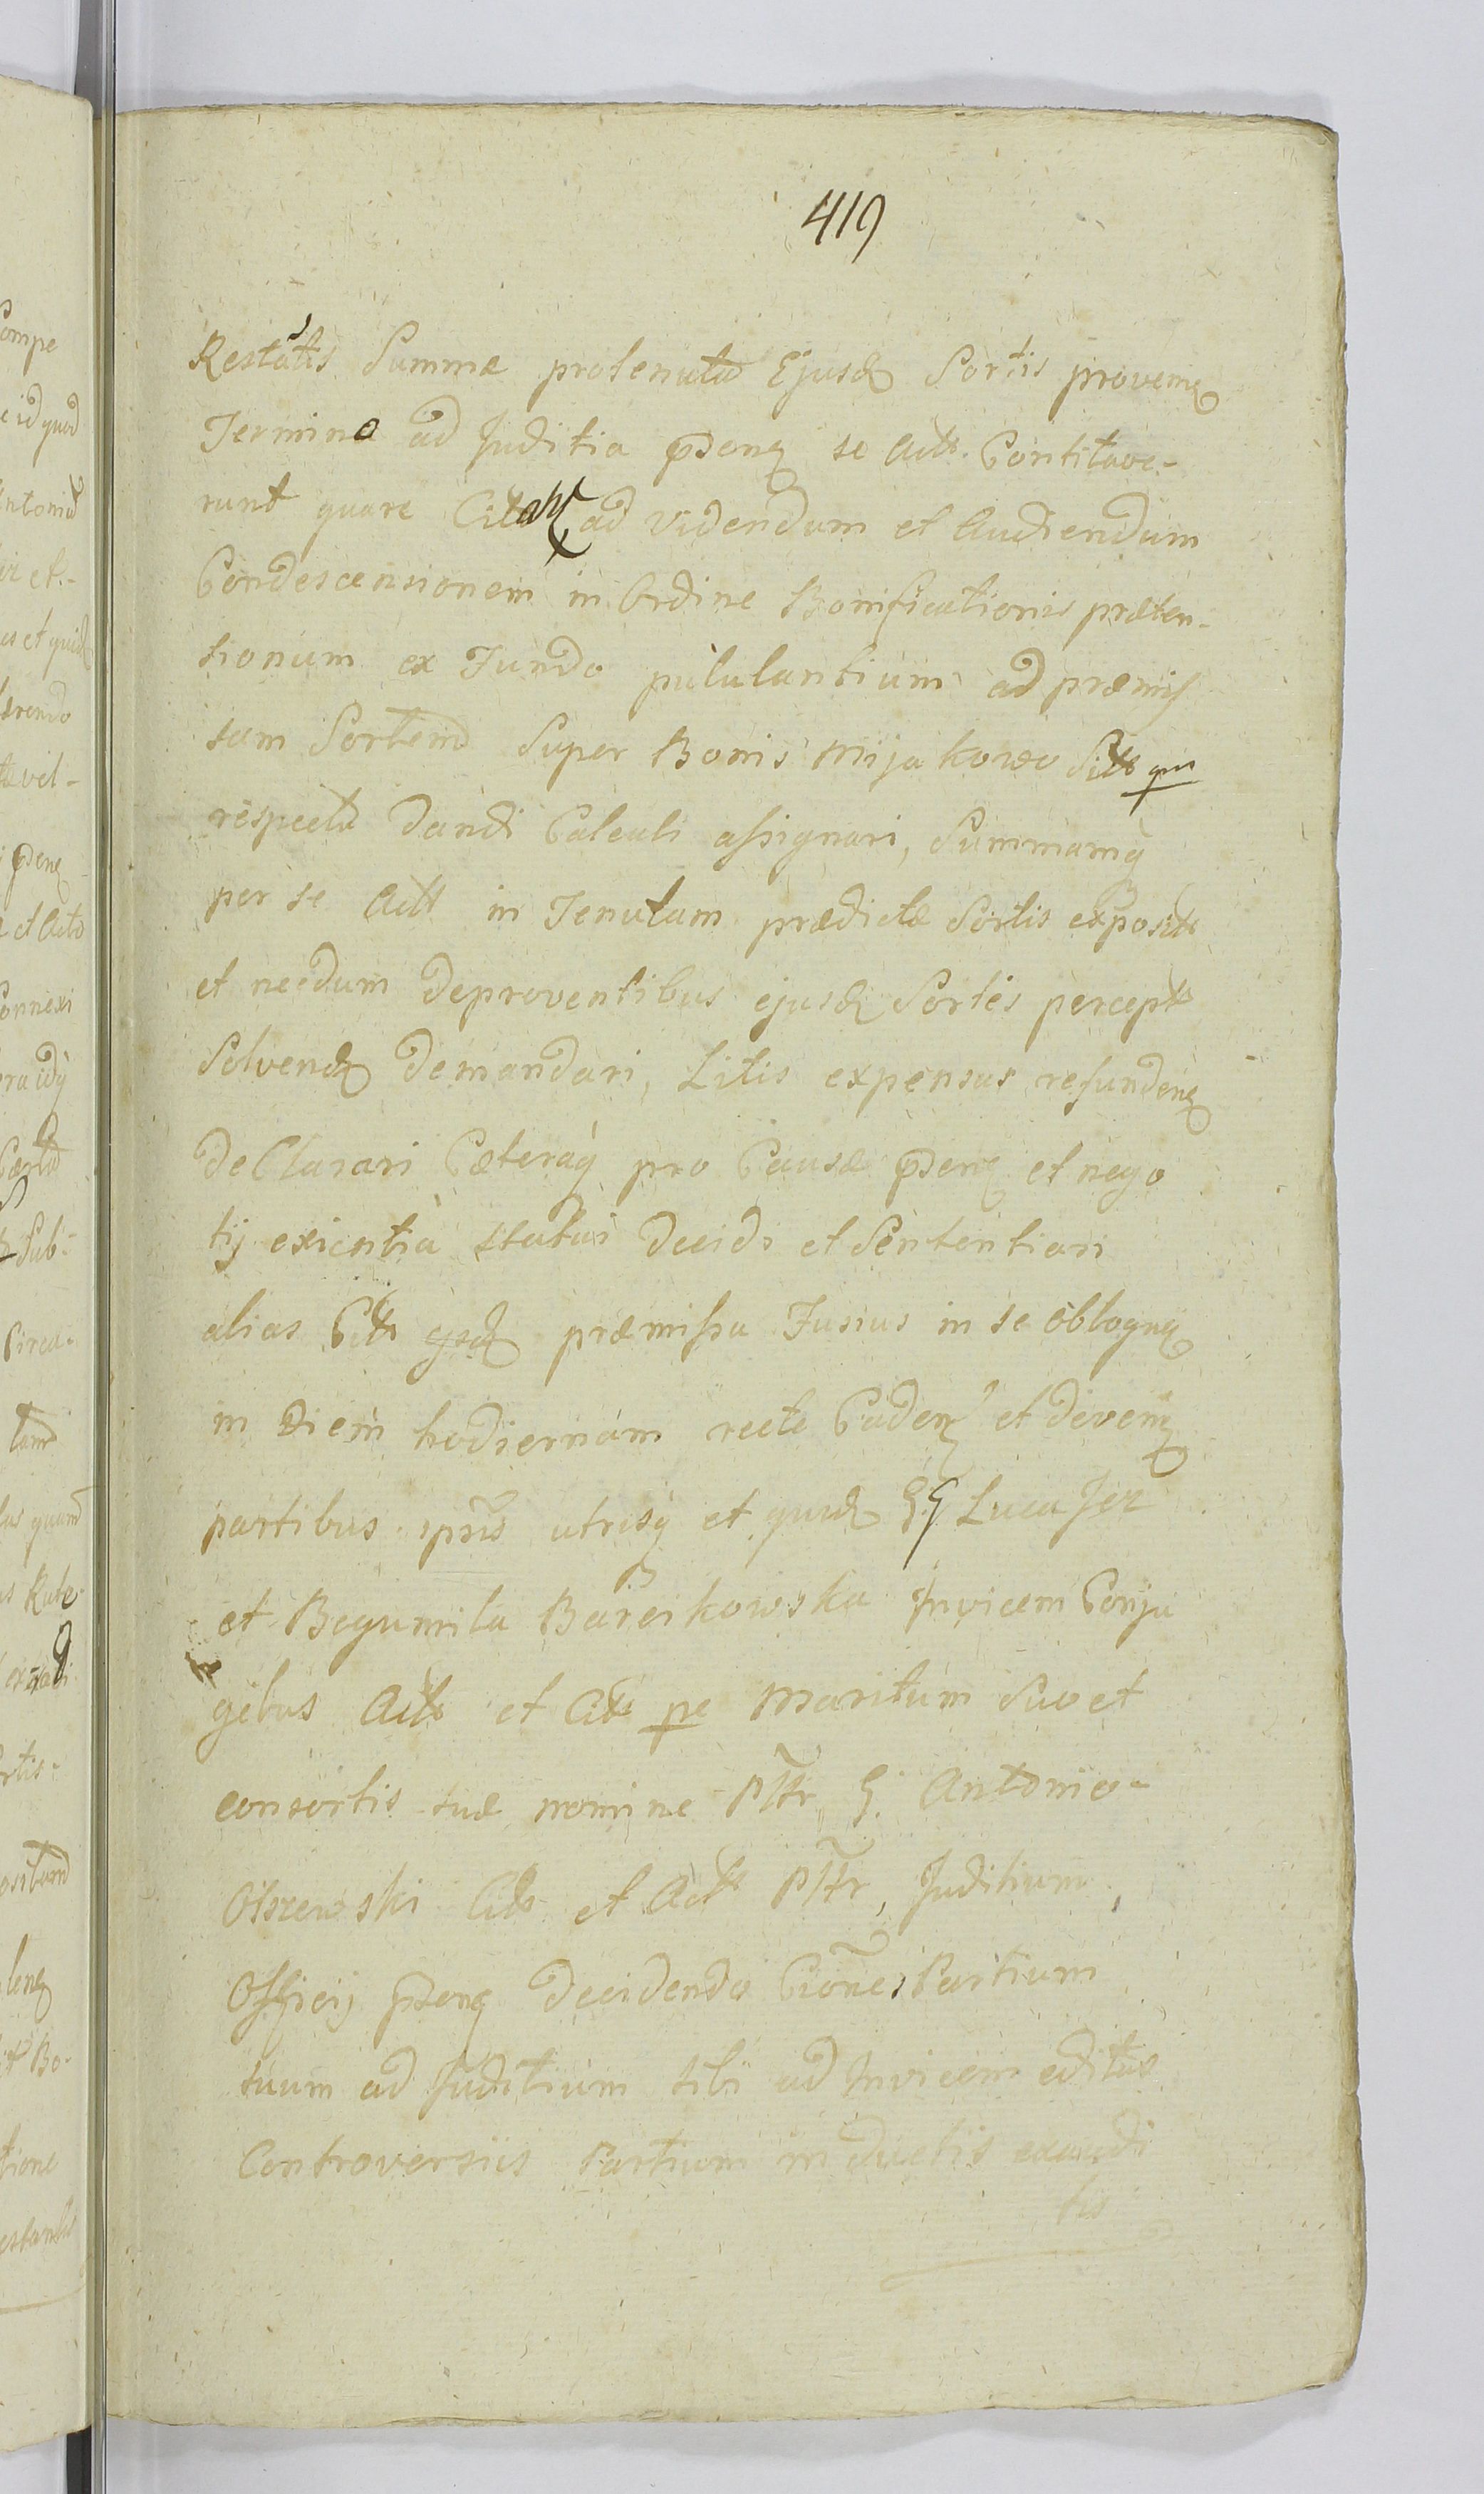 419
Restatis Summæ protenuta Ejusdẽ Sortis provenẽ
Termino ad Juditia prẽsenẽ se Actt. Contitave-
runt quare ad videndum et Audiendum
Condescensionem in Ordine Bonificationis præten-
sionum ex Fundo pullulantium ad præmis
sam Sortem Super Bonis Mijakowo
respectu dandi Calculi assignari, Summamq̃
per se Actt in Tenutam prædictæ Sortis exposit
et necdum deproventibus ejusdẽ Sortis percept
Solvendẽ demandari, Litis expensas refundenẽ
deClarari Cæteraq̃ pro Causæ prẽsenẽ et nego
tij exientia statui decidi et Sententiari
alias præmissa Fusius in se oblogũẽ
in diem hodiernam recte Cadenẽ et devenẽ
partibus ipsis utrisq̃ et quidẽ GG Luca Jez
et Bogumila Barcikowska Invicem Conju
gibus Actt et Citt per Maritum Suo et
consortis suæ nomine G. Antonio
Olszewski Citt et Actt Juditium,
Officij prẽsenẽ decidendo Partium
suum ad Juditium sibi ad Invicem editas
Controversiis Partium inductis exaudi
tis